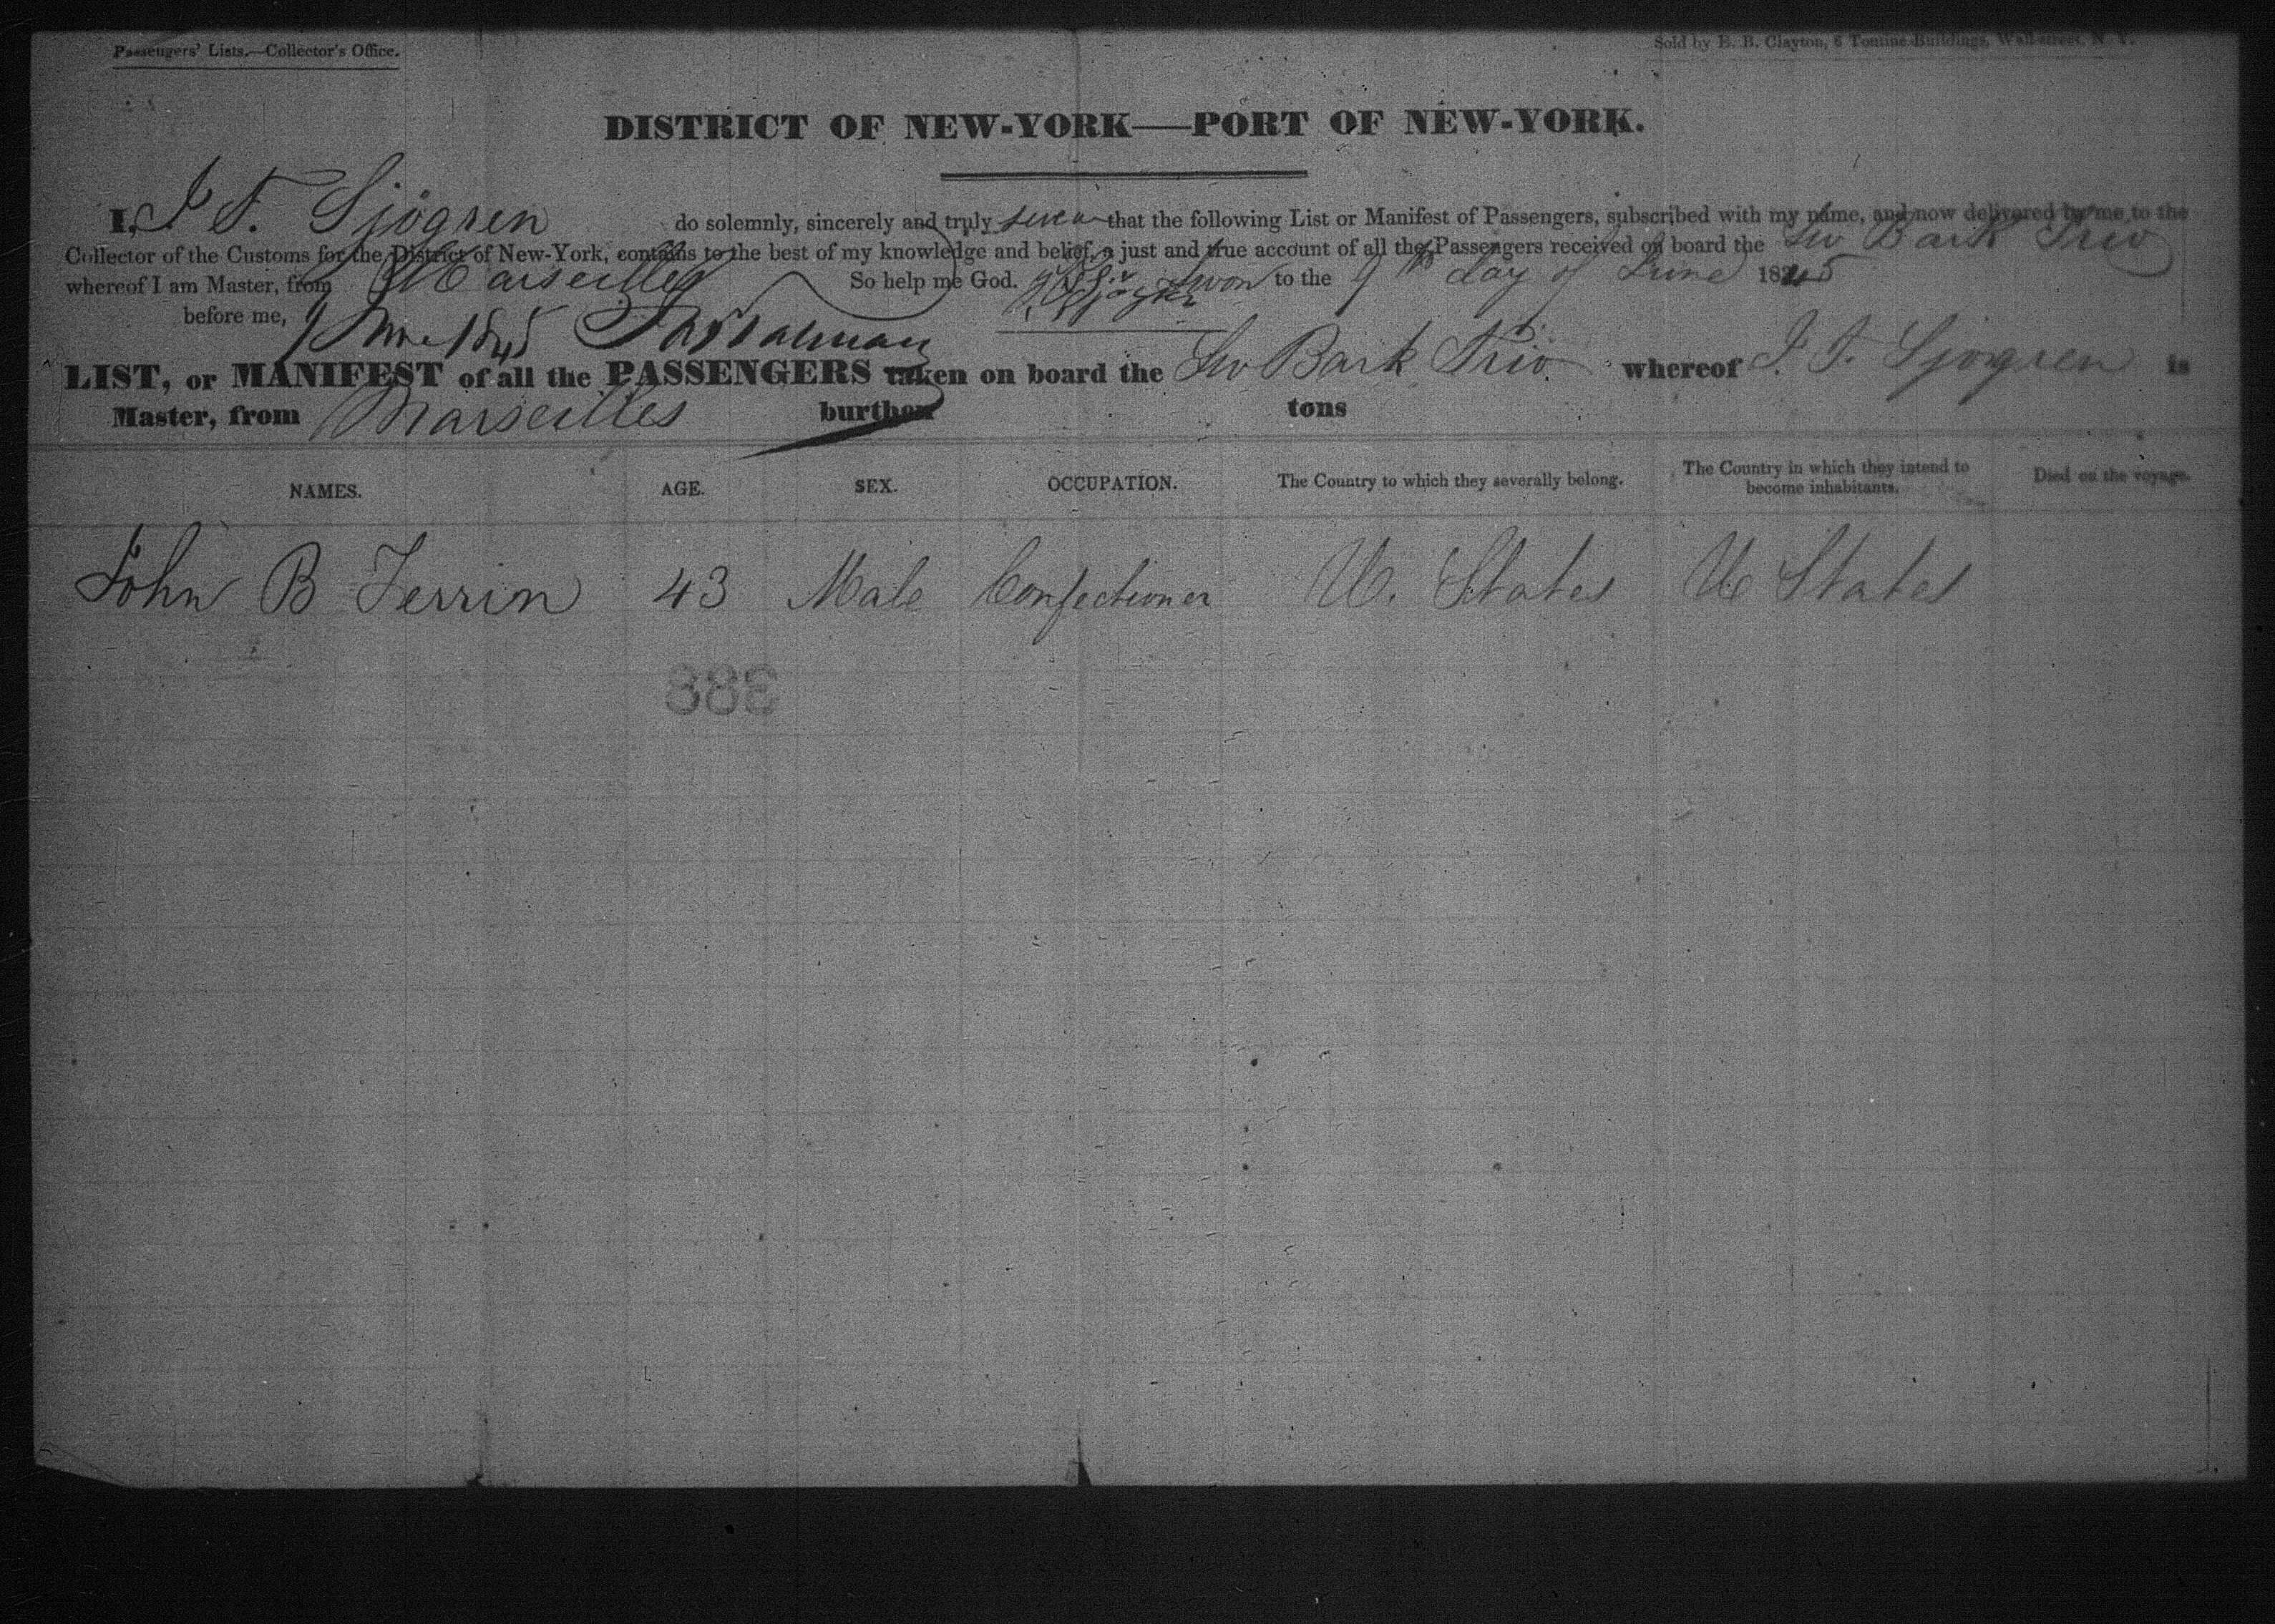 Passengers' Lists.—Collector's Office.
Sold by E. B. Clayton, 6 Tontine Buildings, Wall-street, N. Y.
DISTRICT OF NEW-YORK—PORT OF NEW-YORK.
I, J F. Sjogren do solemnly, sincerely and truly swear that the following List or Manifest of Passengers, subscribed with my name, and now delivered by me to the
Collector of the Customs for the District of New-York, contains to the best of my knowledge and belief, a just and true account of all the Passengers received on board the Sw Bark Trio
whereof I am Master, from Marseilles So help me God. Sjogren Swon to the 9th day of June 1845
before me, 9 June 1845
LIST, or MANIFEST of all the PASSENGERS taken on board the Sw Bark Trio whereof J. F. Sjogren is
Master, from Marseilles burthen tons
NAMES. AGE. SEX. OCCUPATION. The Country to which they severally belong. The Country in which they intend to become inhabitants. Died on the voyage.
John B Ferrin 43 Male Confectioner U. States U States